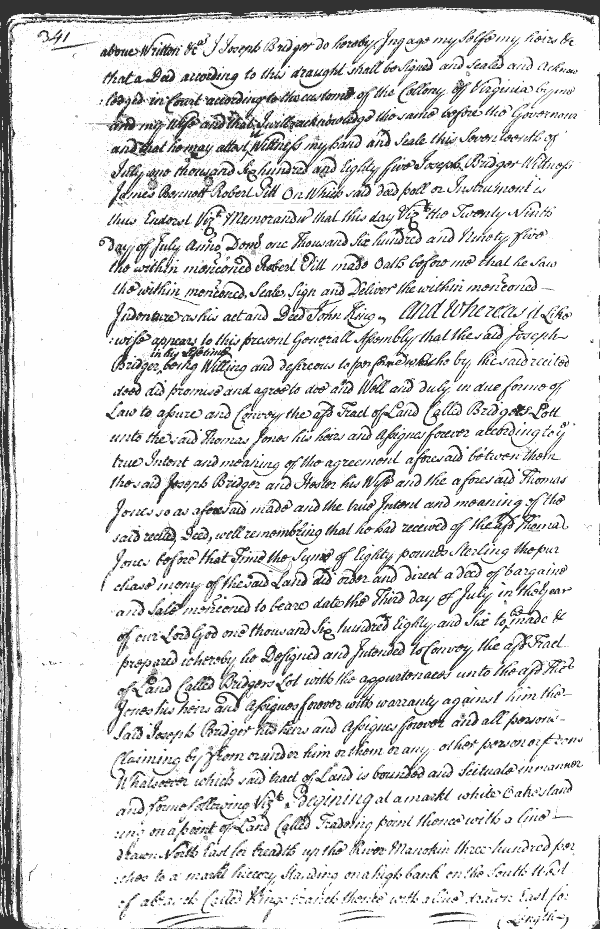 341
above Written &c I Joseph Bridger do hereby Ingage my selfe my heirs &c
that a Deed according to this draught shall be Signed and Sealed and Acknow
ledged in Court according to the custome of the Collony of Virginia by me
and my Wife and that I will acknowledge the same before the Governour
and that he may attest it Wittness my hand and Seale this Seventeenth of
July one thousand Six hundred and Eighty five Joseph Bridger Witness
James Bennett Robert Pitt On Which said Deed poll or Instrument is
thus Endorst Vizt Memorandu that this day Vizt the Twenty Ninth
day of July Anno Dom one Thousand Six hundred and Ninety five
the within mencioned Robert Pitt made Oath before me that he saw
the within mencioned, Seale, Sign and Deliver the within mencioned
Indenture as his act and Deed John King. And Whereas it Like
wise appears to this present Generall Assembly that the said Joseph
in his Lifetime
Bridger being Willing and desireous to performe what he by the said recited
deed did promise and agree to doe and Well and duly in due forme of
Law to assure and Convey the afsd Tract of Land Called Bridgers Lott
unto the said Thomas Jones his heirs and Assignes forever according to ye
true Intent and meaning of the agreement aforesaid between them
the said Joseph Bridger and Hester his Wife and the aforesaid Thomas
Jones so as aforesaid made and the true Intent and meaning of the
said recited Deed, well remembring that he had received of the afsd Thomas
Jones before that Time the Sume of Eighty pounds Sterling the pur
chase mony of the said Land did order and direct a deed of bargaine
and Sale mencioned to beare date the Third day of July in the Year
of our Lord God one thousand Six hundred Eighty and Six to be made &
prepared whereby he Designed and Intended to Convey the afsd Tract
of Land Called Bridgers Lot with the appurtenaces unto the afsd Thos
Jones his heirs and Assignes forever with warranty against him the
said Joseph Bridger his heirs and Assignes forever and all persons
Claiming by from or under him or them or any other person or persons
Whatsoever which said tract of Land is bounded and Scituate in manner
and forme following Vizt Begining at a markt white Oake stand
ing on a point of Land Called Trading point thence with a line
drawn North East for breadth up the River Manokin three hundred per
ches to a markt hiccory standing on a high bank on the South West
of a branch Called Kings branch thence with a line drawn East for
(Length)